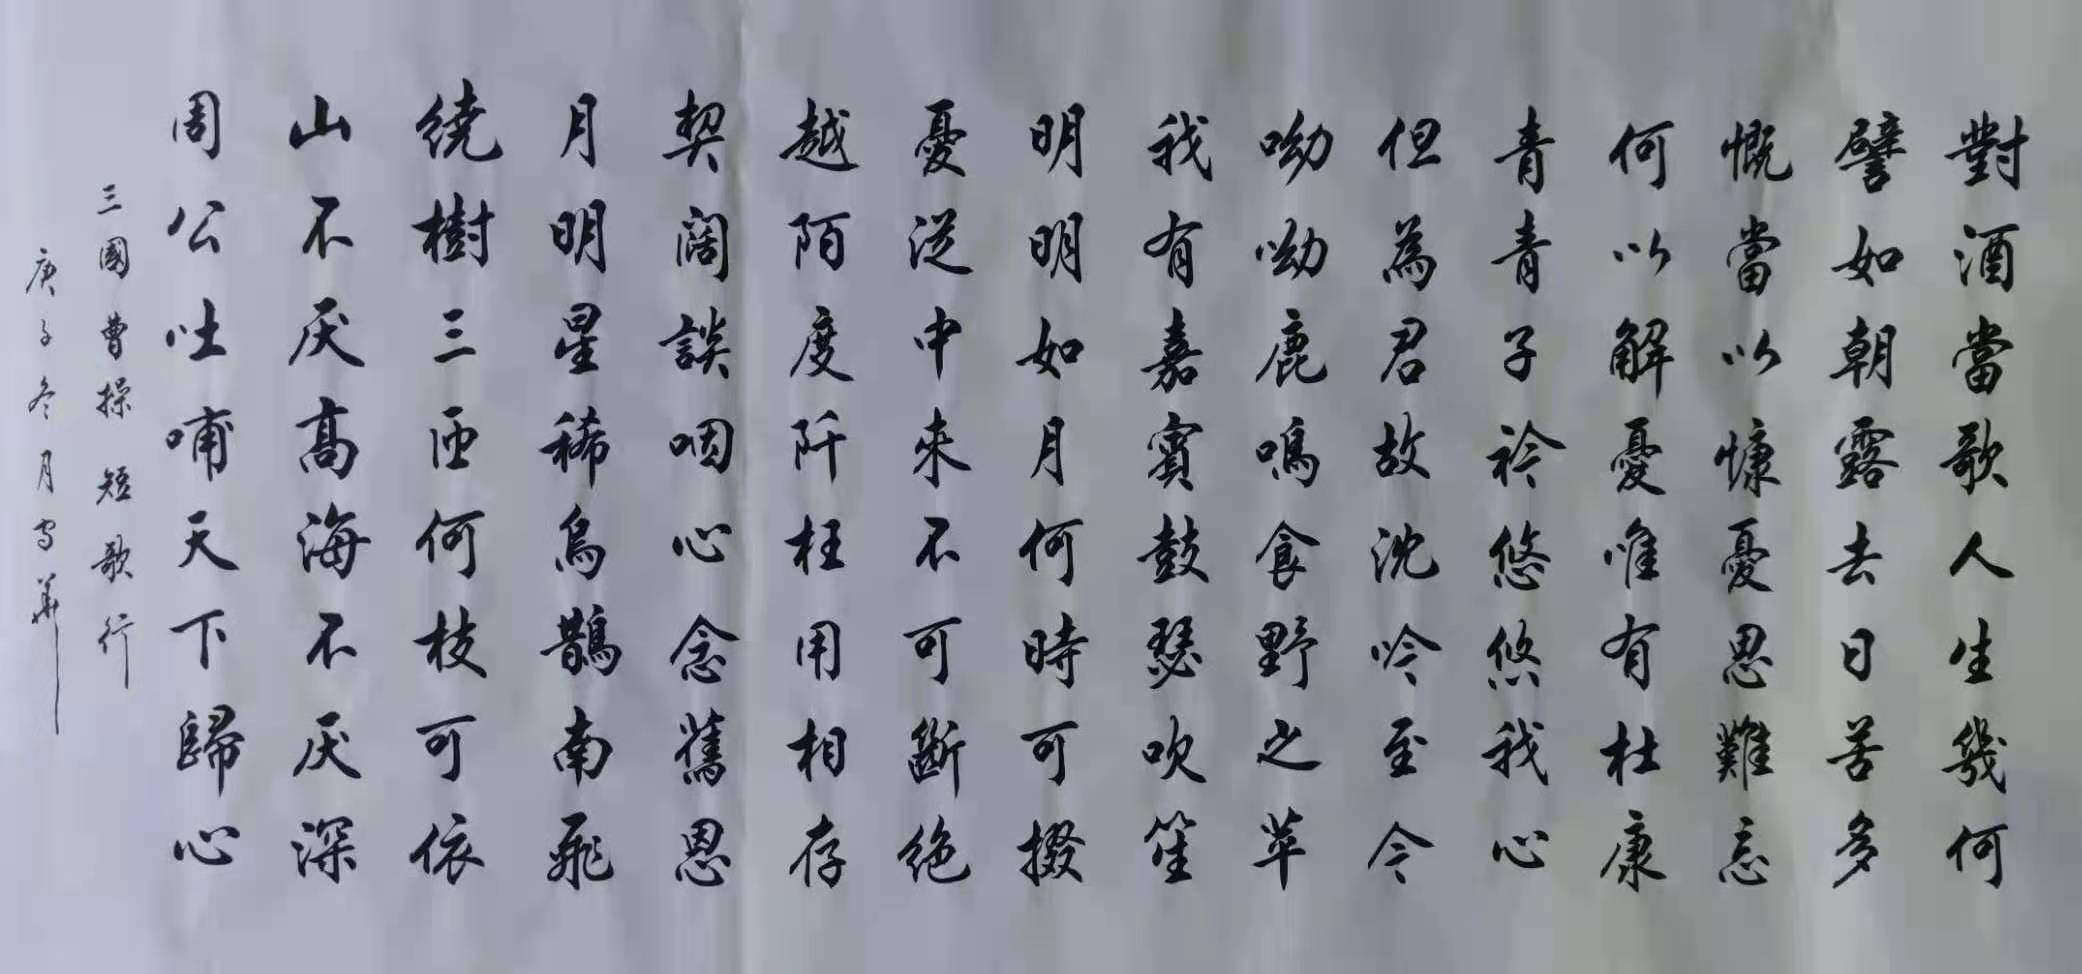 對酒當歌人生幾何
譬如朝露去日苦多
慨當以慷憂思難忘
何以解憂唯有杜康
青青子衿悠悠我心
但為君故沈吟至今
呦呦鹿鳴食野之苹
我有嘉賓鼓瑟吹笙
明明如月何時可掇
憂從中來不可斷絕
越陌度阡枉用相存
契闊談咽心念舊恩
月明星稀烏鵲南飛
繞樹三匝何枝可依
山不厌高海不厌深
周公吐哺天下歸心
三國曹操短歌行
庚子冬月